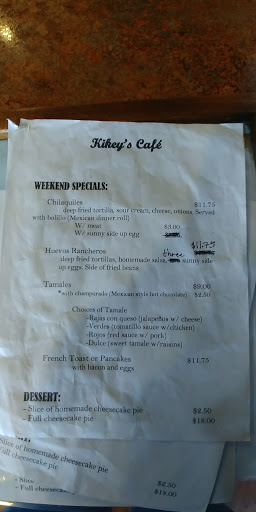 Kikey's Café
WEEKEND SPECIALS:
Chilaquiles $11.75
deep fried tortilla, sour cream, cheese, onions. Served
with bolillo (Mexican dinner roll)
W/ meat $3.00
W/ sunny side up egg
$11.75
Huevos Rancheros three
deep fried tortillas, homemade salsa, sunny side
up eggs. Side of fried beans
Tamales $9.00
*with champurado (Mexican style hot chocolate) $2.50
Choices of Tamale
-Rajas con queso (jalapeños w/ cheese)
-Verdes (tomatillo sauce w/chicken)
-Rojos (red sauce w/ pork)
-Dulce (sweet tamale w/raisins)
French Toast or Pancakes $11.75
with bacon and eggs
DESSERT:
- Slice of homemade cheesecake pie $2.50
- Full cheesecake pie $18.00
- Slice of homemade cheesecake pie
- Full cheesecake pie
- Slice $2.50
- Full cheeseca $18.00